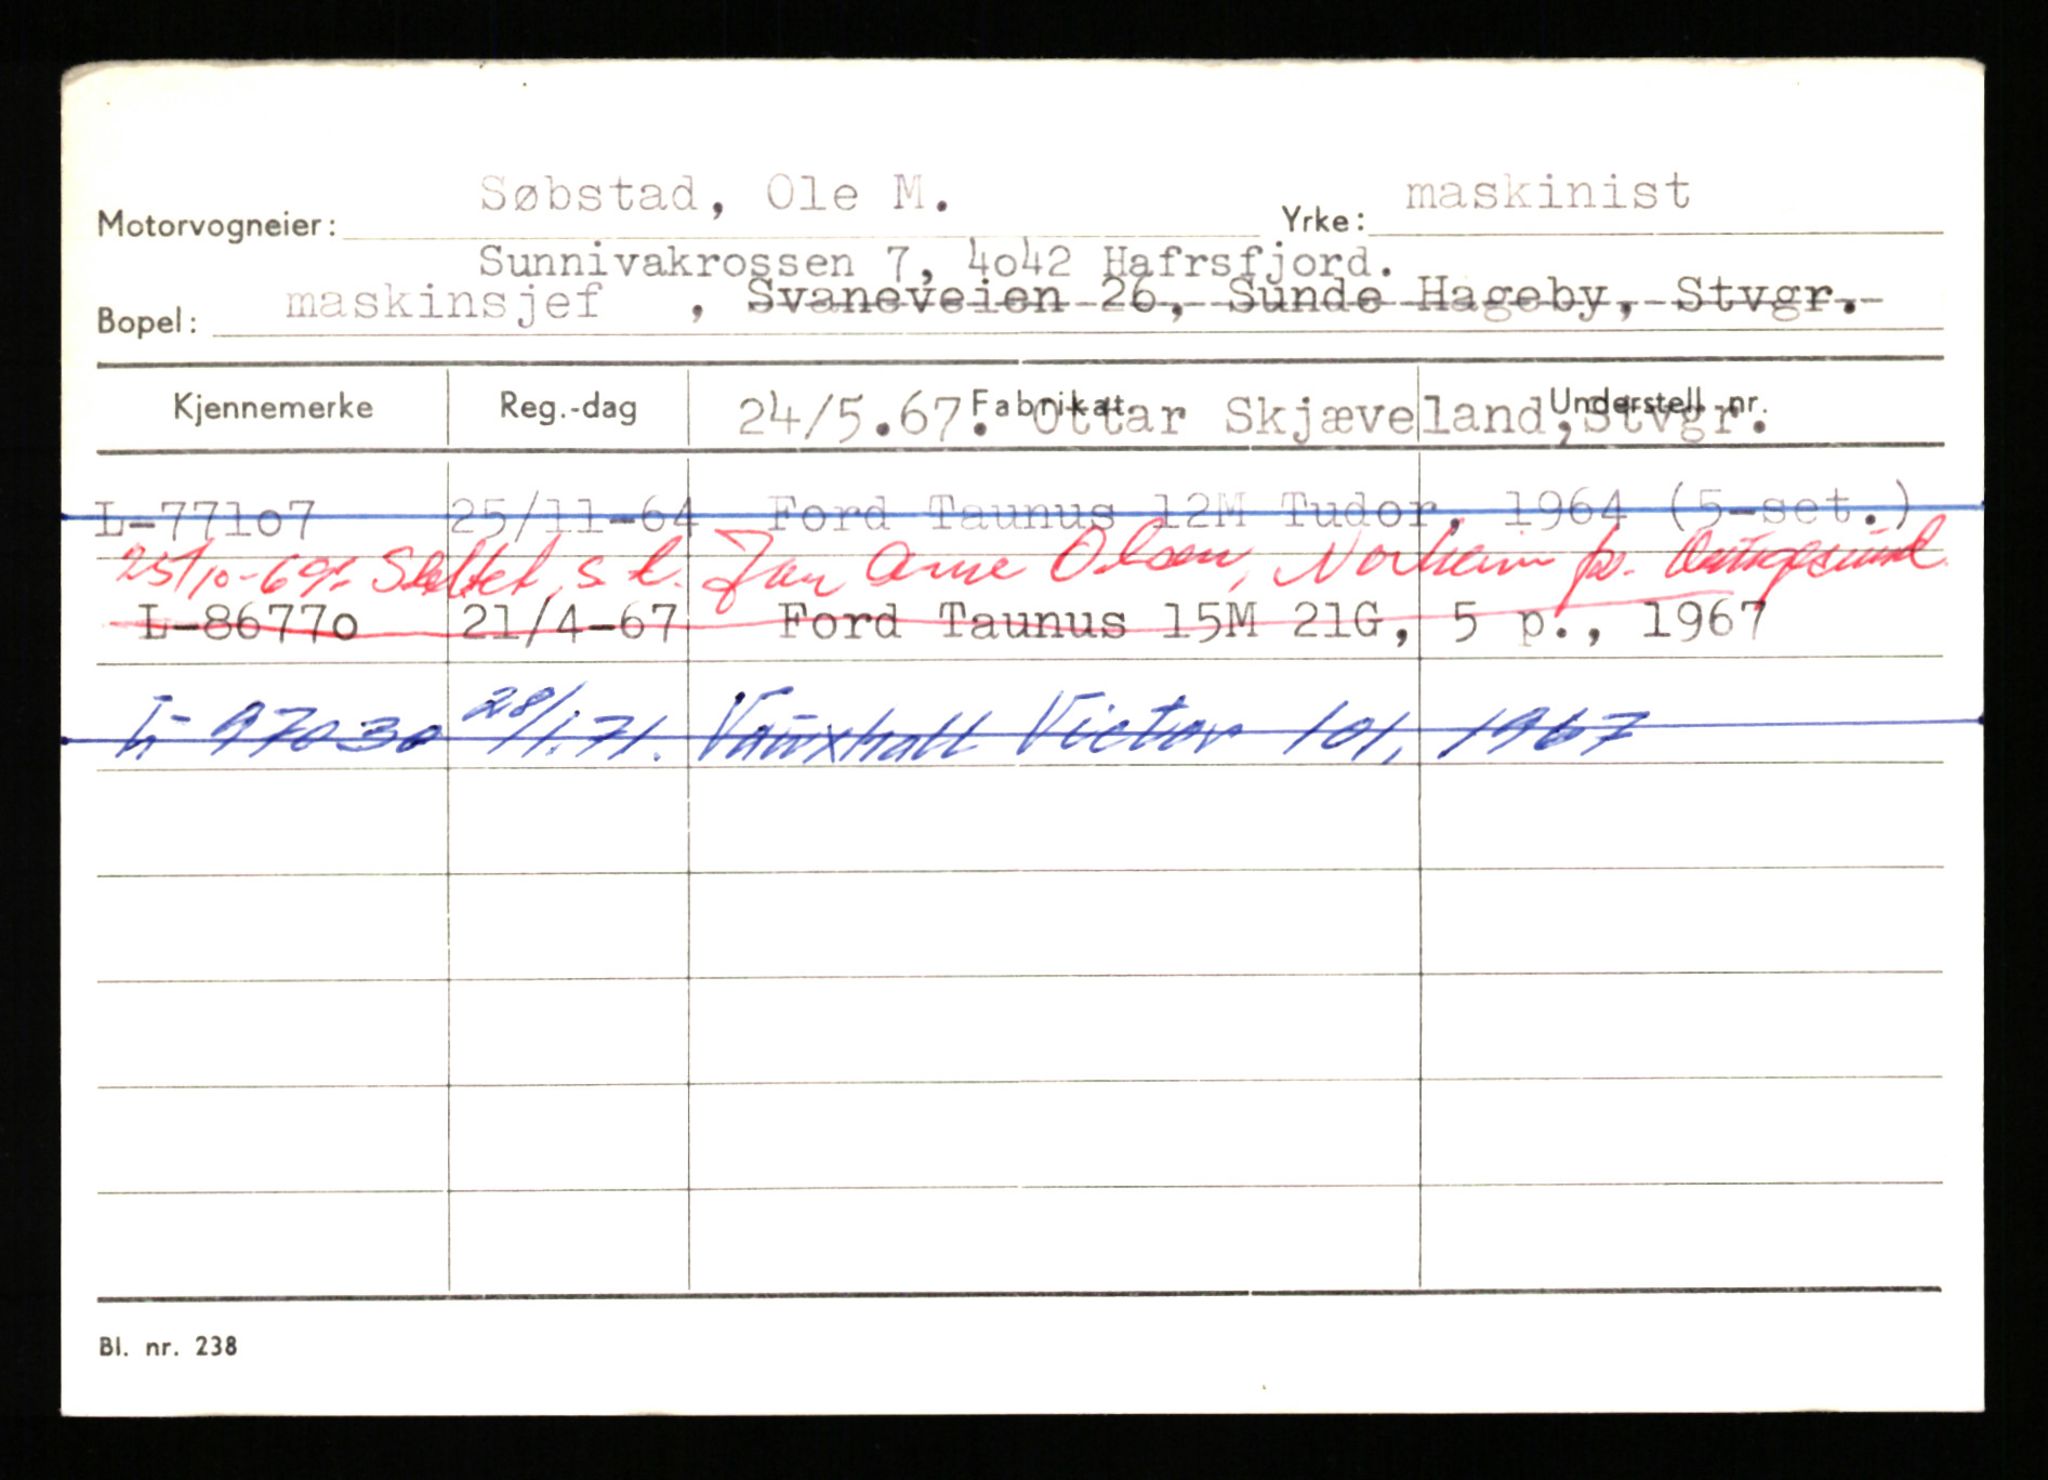 Søbstad, Ole M. maskinist
Motorvogneier: Yrke:
Sunnivakrossen 7, 4o42 Hafrsfjord.
Bopel: maskinsjef , Svaneveien 26, Sunde Hageby, Stvgr.
Kjennemerke Reg.-dag Fabrikat Understell nr.
24/5.67. Ottar Skjæveland, Stvgr.
L-77lo7 25/11-64 Ford Taunus 12M Tudor, 1964 (5-set.)
25/10-69: Slettet, s.l. Jan Arne Olsen, Norheim pr.
L-8677o 21/4-67 Ford Taunus 15M 21G, 5 p., 1967
L-97030 28/1.71. Vauxhall Victor 101, 1967
Bl. nr. 238